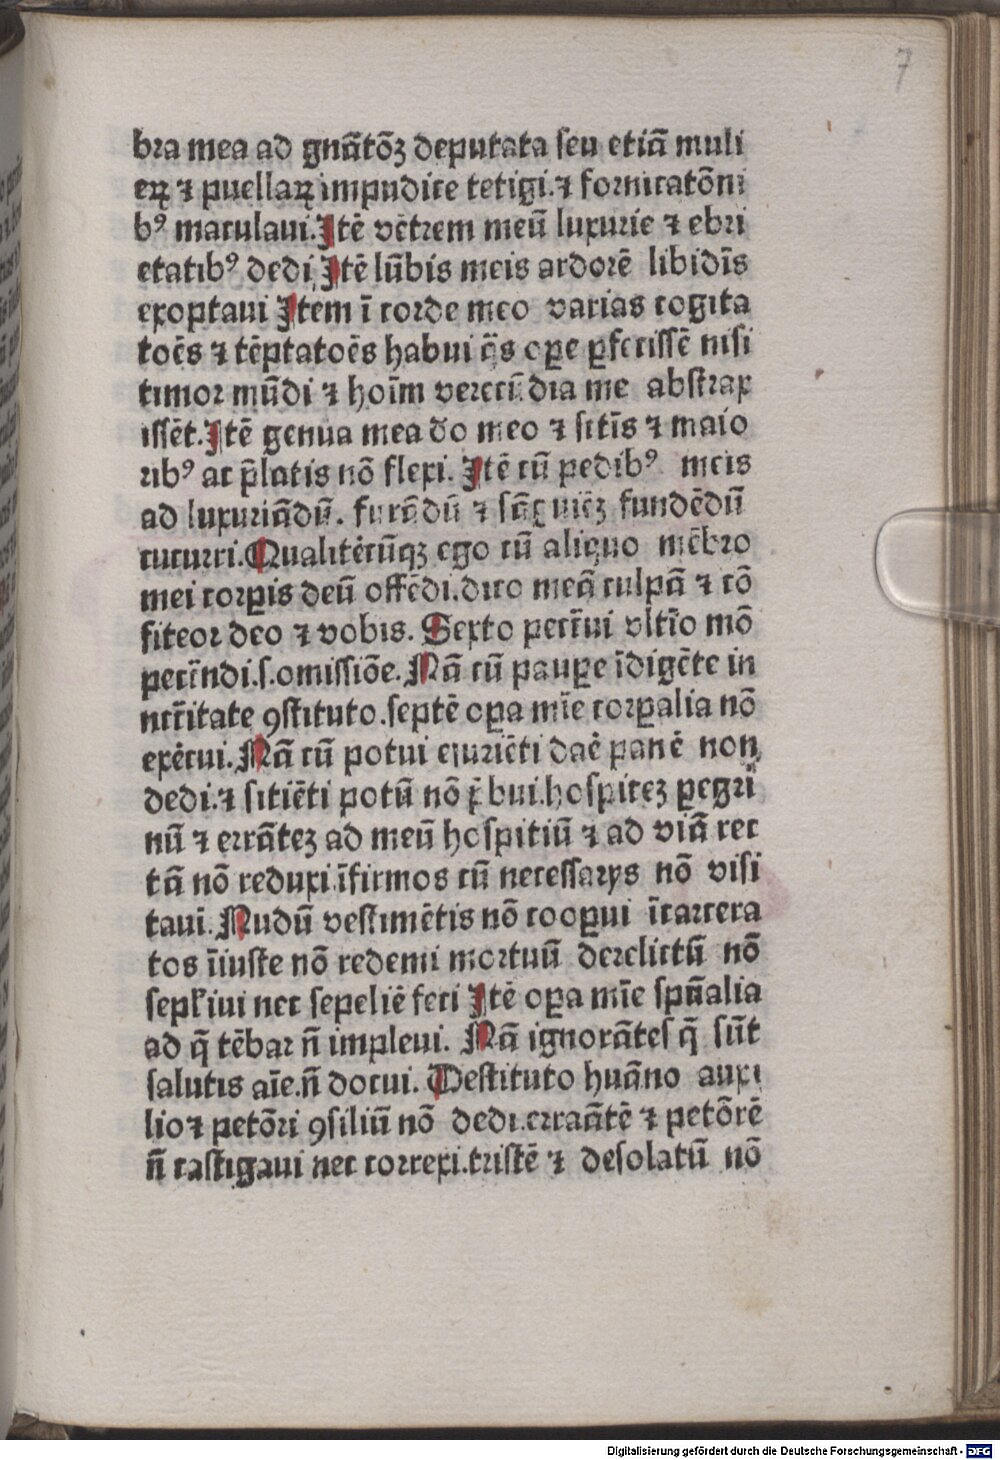 7
bra mea ad gnãtõꝫ deputata seu etiã muli
eꝝ ⁊ puellaꝝ impudice tetigi.⁊ fornicatõni
bꝰ maculaui.Jtẽ vẽtrem meũ luxurie ⁊ ebri
etatibꝰ dedi.Jtẽ lũbis meis ardorẽ libidĩs
exoptaui Jtem ĩ corde meo varias cogita
toẽs ⁊ tẽptatoẽs habui q̃s oꝑe ꝑfecissẽ nisi
timor mũdi ⁊ hoĩm verecũdia me abstrax
issẽt.Jtẽ genua mea do meo ⁊ sctĩs ⁊ maio
ribꝰ ac p̃latis nõ flexi. Jtẽ cũ pedibꝰ meis
ad luxuriãdũ. furãdũ ⁊ sãguiẽꝫ fundẽdũ
cucurri.Qualitẽcũqꝫ ego cũ aliquo mẽbro
mei corꝑis deũ offẽdi.dico meã culpã ⁊ cõ
fiteor deo ⁊ vobis. Sexto pecc̃ui vltĩo mõ
pecc̃ndi.s.omissiõe.Nã cũ pauꝑe ĩdigẽte in
ncc̃itate ꝯstituto.septẽ oꝑa mĩe corꝑalia nõ
exẽcui.Nã cũ potui esuriẽti daẽ panẽ non
dedi.⁊ sitiẽti potũ nõ p̃bui.hospiteꝫ ꝑegri
nũ ⁊ errãteꝫ ad meũ hospitiũ ⁊ ad viã rec
tã nõ reduxi.ĩfirmos cũ necessarys nõ visi
taui. Nudũ vestimẽtis nõ cooꝑui ĩcarcera
tos ĩiuste nõ redemi mortuũ derelictũ nõ
sepl̃iui nec sepeliẽ feci Jtẽ oꝑa mĩe spũalia
ad q̃ tẽbar ñ impleui. Nã ignorãtes q̃ sũt
salutis aĩe.ñ docui. Destituto huãno auxi
lio ⁊ petõri ꝯsiliũ nõ dedi.erraãtẽ ⁊ petõrẽ
ñ castigaui nec correxi.tristẽ ⁊ desolatũ nõ
Digitalisierung gefördert durch die Deutsche Forschungsgemeinschaft - DFG